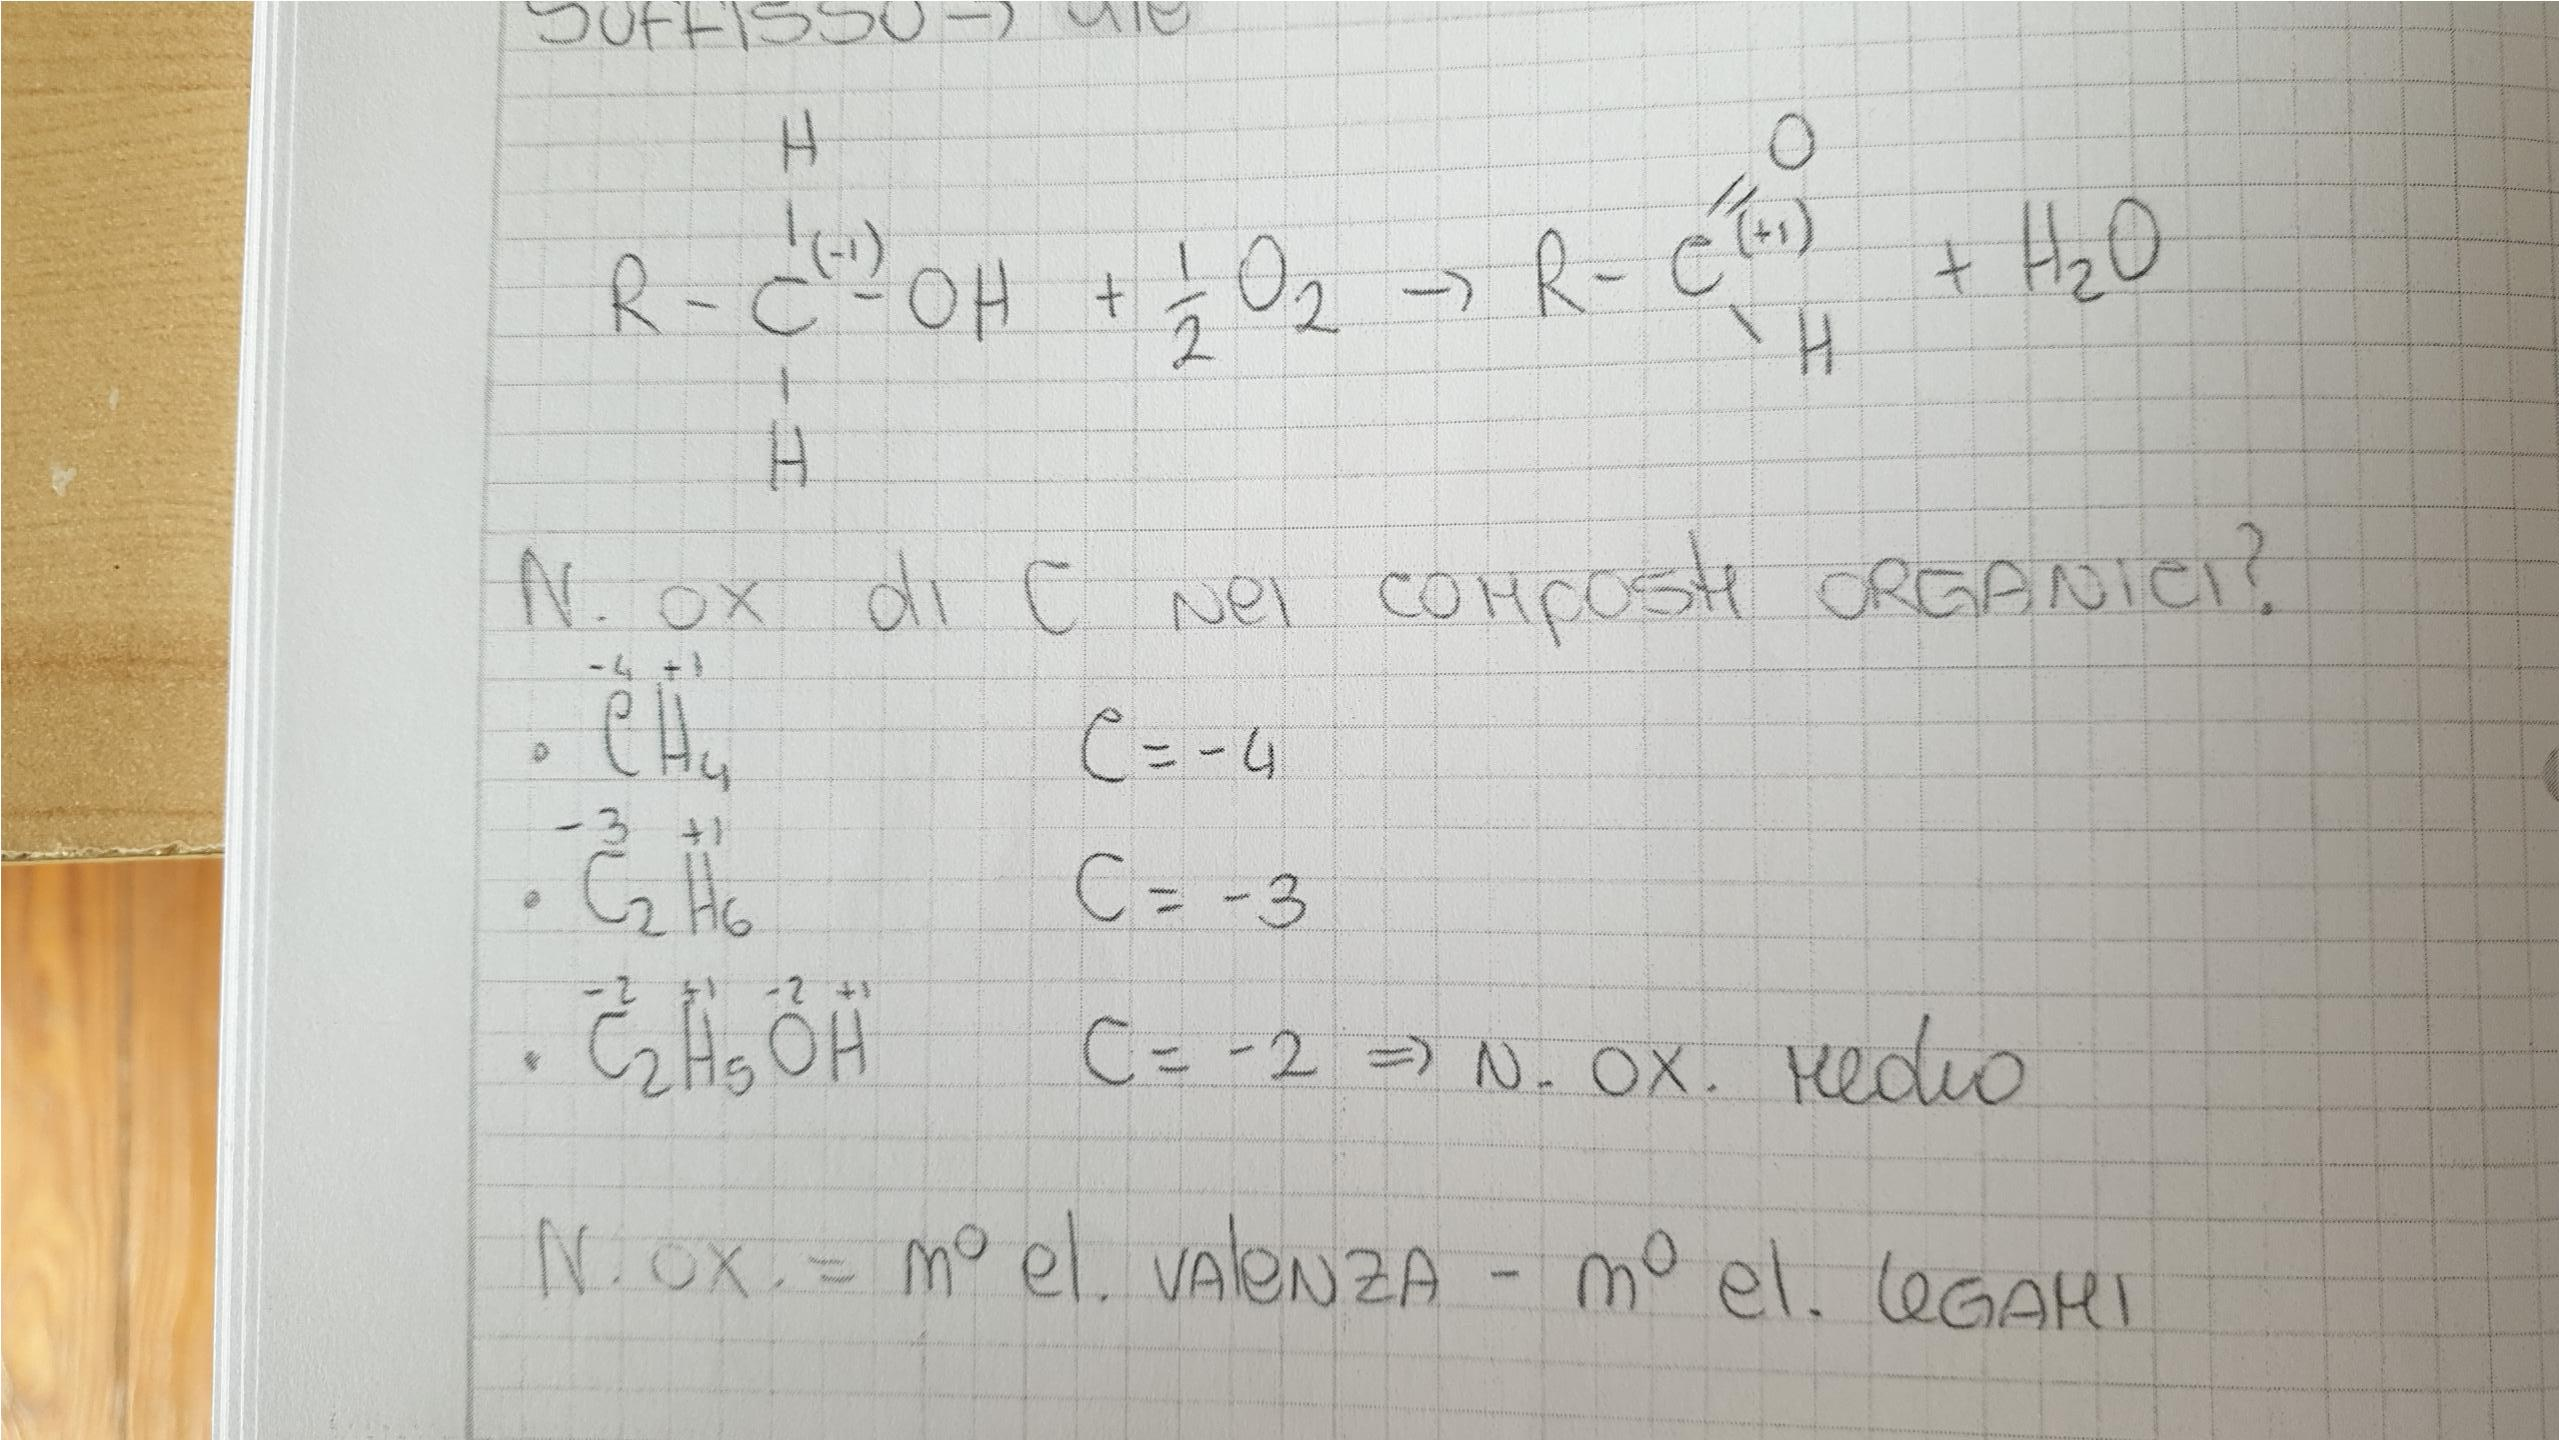 SUFFISSO → ale
H
|
R - C(-1) - OH + 1/2 O2 → R - C(+1) =O + H2O
| \ H
H
N. OX di C NEI COMPOSTI ORGANICI?
-4 +1
• CH4 C = -4
-3 +1
• C2H6 C = -3
-2 +1 -2 +1
• C2H5OH C = -2 => N. OX. MEDIO
N. OX. = n° el. VALENZA - n° el. LEGAMI